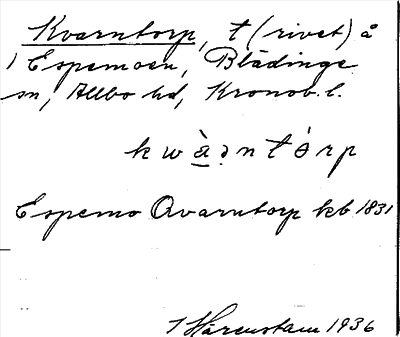 Kvarntorp, t (rivet) å
1 Espemoen, Blädinge
sn, Allbo hd, Kronob. l.
kwàrntórp
Espemo Qvarntorp kb 1831
Härenstam 1936